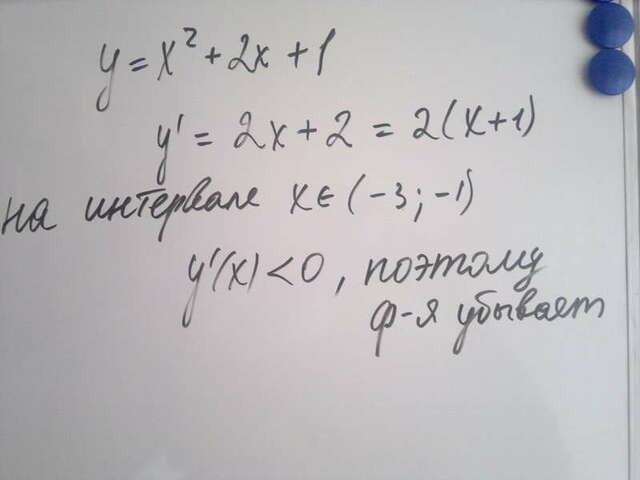 y = x² + 2x + 1
y' = 2x + 2 = 2(x+1)
на интервале x ∈ (-3; -1)
y'(x) < 0, поэтому
ф-я убывает